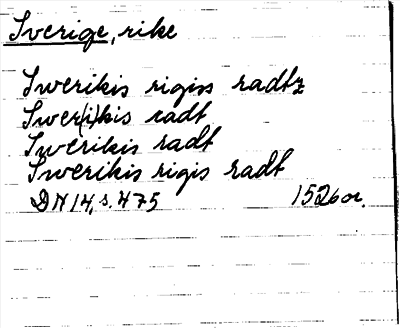 Sverige, rike
Swerikis rigiss radtz
Swer(i)kis radt
Swerikis radt
Swerikis rigis radt
DN 14, s. 475 1526 or.